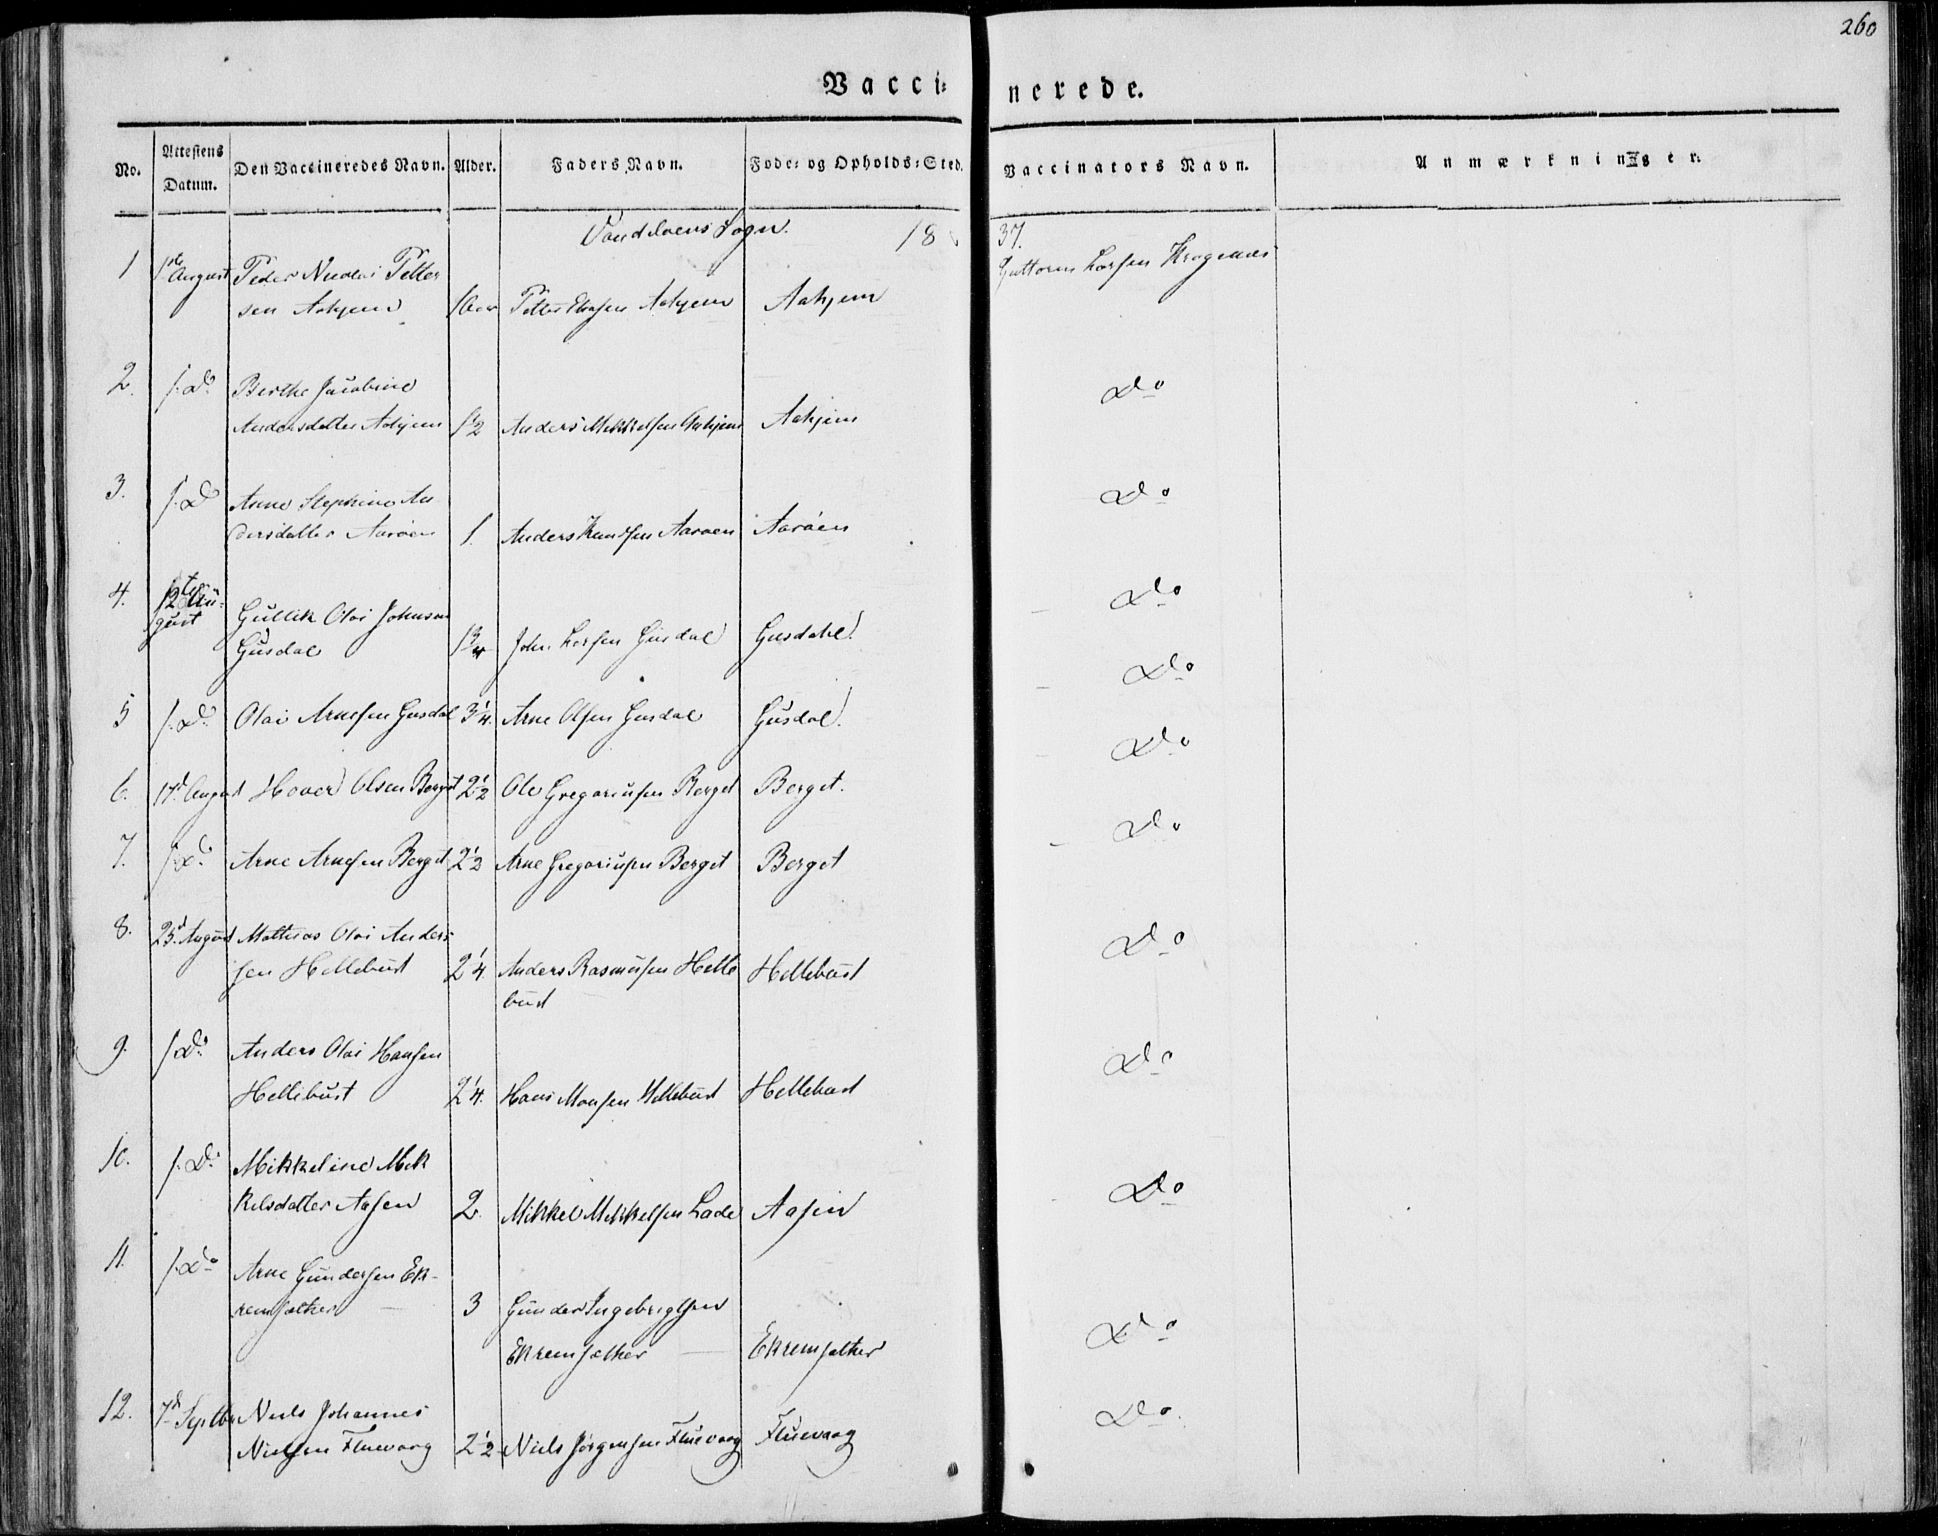 260
Vacci= nerede.
No. Attestens Datum. Den Vaccineredes Navn. Alder. Faders Navn. Føde= og Opholds=Sted. Vaccinators Navn. Anmærkninger.
Sogn. 18 37.
1 1ste August Peder Nicolai Petter
sen Aahjem Petter Aahjem Aahjem Guttorm Larsen Krogenæs
2. s. Do Berthe Jacobine
Andersdatter Aahjem 1½ Anders Mikkelsen Aahjem Aahjem Do
3. s. Do Anne Stephine An
dersdatter Aaröen 1. Anders Knudsen Aaröen Aaröen Do
4. 12te Au=
gust Gullik Olai Johnsen
Gusdal 1¾ John Larsen Gusdal Gusdahl. Do
5 s. Do Olai Arnesen Gusdal 3¼. Arne Olsen Gusdal Gusdal. Do
6. 17d August Hover Olsen Berget 2½ Ole Gregoriusen Berget Berget. Do
7. s. Do Arne Arnesen Berget 2½ Arne Gregoriusen Berget Berget Do
8. 25d August Mathias Olai Anders
sen Hellebust 2¼. Anders Rasmusen Helle
bust Hellebust Do
9. s. Do Anders Olai Hansen
Hellebust 2¼. Hans Monsen Hellebust Hellebust Do
10. s. Do Mikkeline Mik
kelsdatter Aasen 2. Mikkel Mikkelsen Lade Aasen Do
11. s. Do Arne Gundersen Ek-
remsæther 3 Gunder Ingebrigtsen
Ekremsæther Ekremsæther Do
12. 7d Septbr Niels Johannes
Nielsen Fluevaag 2½ Niels Jörgensen Fluevaag Fluevaag Do